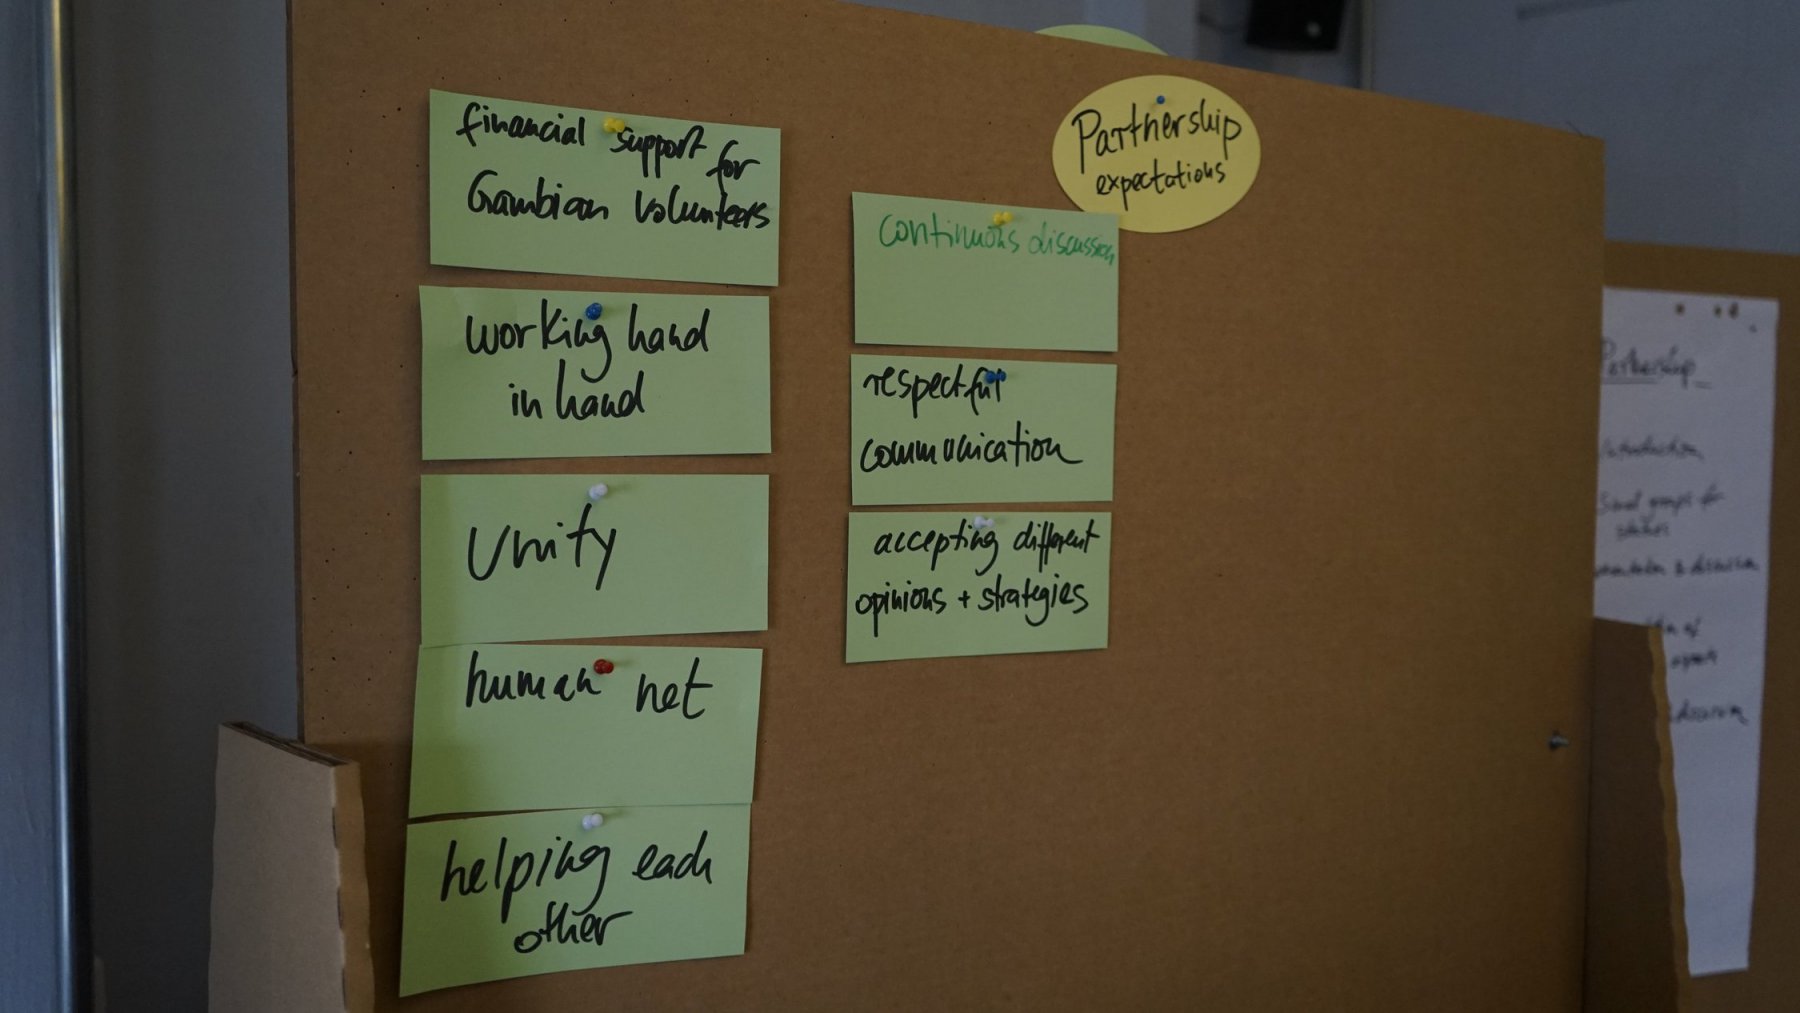 Partnership
expectations
financial support for
Gambian volunteers
working hand
in hand
Unity
human net
helping each
other
continuous discussion
respectful
communication
accepting different
opinions + strategies
Partnership
Introduction
Small groups for
& discussion